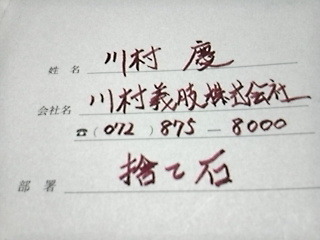 姓名 川村 慶
会社名 川村義肢株式会社
☎(072)875-8000
部署 捨て石